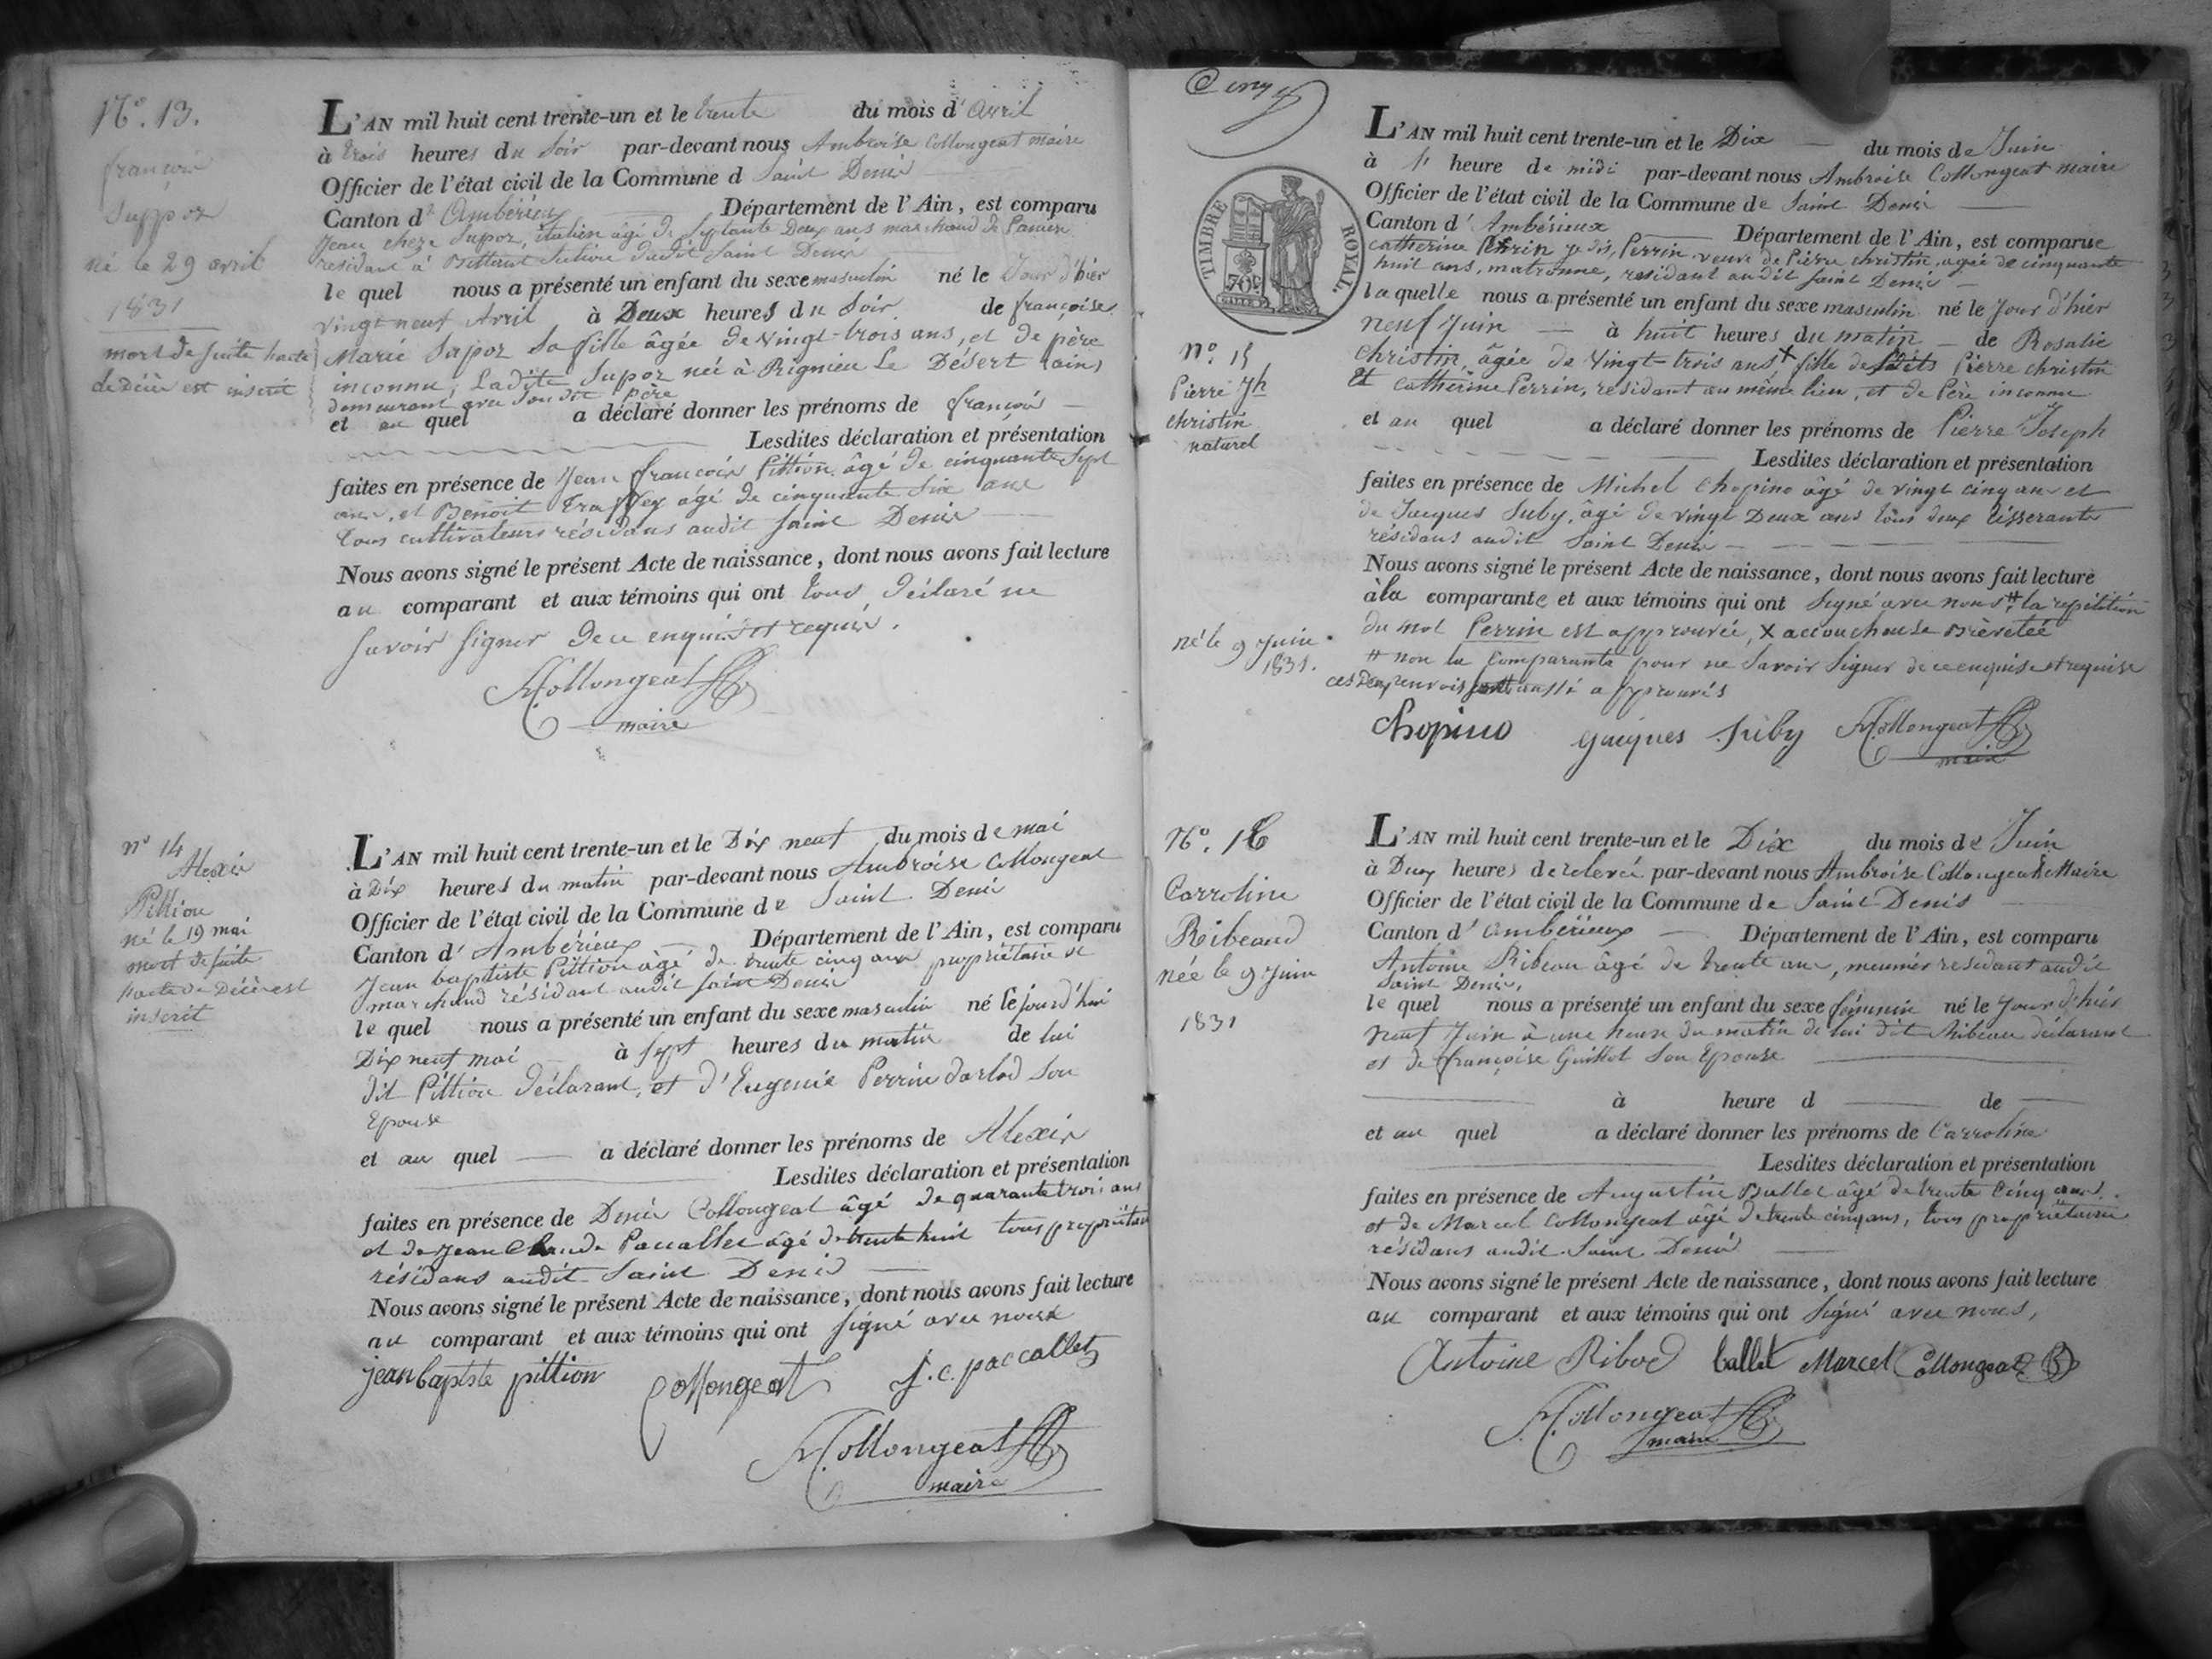 N.º 13.
françois
Suppoz
né le 29 avril
1831
mort de suite l'acte
de Décès est inscrit
L'AN mil huit cent trente-un et le trente du mois d'avril
à trois heures du soir par-devant nous Ambroise Collongeat maire
Officier de l'état civil de la Commune d Saint Denis
Canton d' Ambérieux Département de l'Ain, est comparu
Jean Supoz, italien âgé de septante Deux ans marchand de
résidant à dudit Saint Denis
le quel nous a présenté un enfant du sexe masculin né le Jour d'hier
vingt neuf Avril à Deux heures du soir de françoise
Marie Supoz sa fille âgée de vingt-trois ans, et de père
inconnu, Ladite Supoz née à Rignieu Le Désert (ain)
demeurant avec sondit père
et au quel a déclaré donner les prénoms de françois
Lesdites déclaration et présentation
faites en présence de Jean françois Pittion âgé de cinquante sept
ans, et Benoit Traffey âgé de cinquante six ans
tous cultivateurs résidans audit Saint Denis
Nous avons signé le présent Acte de naissance, dont nous avons fait lecture
au comparant et aux témoins qui ont tous déclaré ne
savoir signer de ce enquis et requis.
A. Collongeat
maire
nº 14
Alexis
Pittion
né le 19 mai
mort de suite
l'acte de Décès est
inscrit
L'AN mil huit cent trente-un et le Dix neuf du mois de mai
à Dix heures du matin par-devant nous Ambroise Collongeat
Officier de l'état civil de la Commune de Saint Denis
Canton d' Ambérieux Département de l'Ain, est comparu
Jean baptiste Pittion âgé de trente cinq ans propriétaire et
marchand résidant audit Saint Denis
le quel nous a présenté un enfant du sexe masculin né le jourd'hui
Dix neuf mai à sept heures du matin de lui
dit Pittion déclarant, et d'Eugenie Perrin darlod son
Epouse
et au quel a déclaré donner les prénoms de Alexis
Lesdites déclaration et présentation
faites en présence de Denis Collongeat âgé de quarante trois ans
et de Jean Claude Paccallet âgé de trente huit tous propriétaires
résidans audit Saint Denis
Nous avons signé le présent Acte de naissance, dont nous avons fait lecture
au comparant et aux témoins qui ont signé avec nous
jean baptste pittion Collongeat j. c. paccallet
A. Collongeat
maire
TIMBRE ROYAL.
70c
Nº. 15
Pierre Jh
christin
naturel
né le 9 Juin
1831.
L'AN mil huit cent trente-un et le Dix du mois de Juin
à 1 heure de midi par-devant nous Ambroise Collongeat maire
Officier de l'état civil de la Commune de Saint Denis
Canton d' Ambérieux Département de l'Ain, est comparue
catherine Perrin je dis, Perrin veuve de Pierre christin, agée de cinquante
huit ans, matronne, residant audit Saint Denis
laquelle nous a présenté un enfant du sexe masculin né le Jour d'hier
neuf Juin à huit heures du matin de Rosalie
christin, âgée de vingt-trois ans X fille de Pierre christin
Et catherine Perrin, residant au même lieu, et de Père inconnu
et au quel a déclaré donner les prénoms de Pierre Joseph
Lesdites déclaration et présentation
faites en présence de Michel Chopino âgé de vingt cinq ans et
de Jacques Suby, âgé de vingt Deux ans tous deux tisserants
résidans audit Saint Denis
Nous avons signé le présent Acte de naissance, dont nous avons fait lecture
à la comparante et aux témoins qui ont signé avec nous # la répétition
du mot Perrin est approuvée, X accoucheuse Brèvetée
# non la Comparante pour ne savoir signer de ce enquise et requise
ces Deux renvois sont aussi approuvés
Chopino Gacques Suby A. Collongeat
maire
Nº. 16
Carroline
Ribeaud
née le 9 Juin
1831
L'AN mil huit cent trente-un et le Dix du mois de Juin
à Deux heures de relevé par-devant nous Ambroise Collongeat Maire
Officier de l'état civil de la Commune de Saint Denis
Canton d' Ambérieux Département de l'Ain, est comparu
Antoine Ribeau âgé de trente ans, meunier residant audit
Saint Denis,
le quel nous a présenté un enfant du sexe féminin né le Jour d'hier
neuf Juin à une heure du matin de lui dit Ribeau déclarant
et de françoise Guillot son Epouse
à heure d de
et au quel a déclaré donner les prénoms de Carroline
Lesdites déclaration et présentation
faites en présence de Augustin Ballet âgé de trente cinq ans
et de Marcel Collongeat âgé de trente cinq ans, tous propriétaires
résidans audit Saint Denis
Nous avons signé le présent Acte de naissance, dont nous avons fait lecture
au comparant et aux témoins qui ont signé avec nous,
Antoine Ribod ballet Marcel Collongeat
A. Collongeat
maire